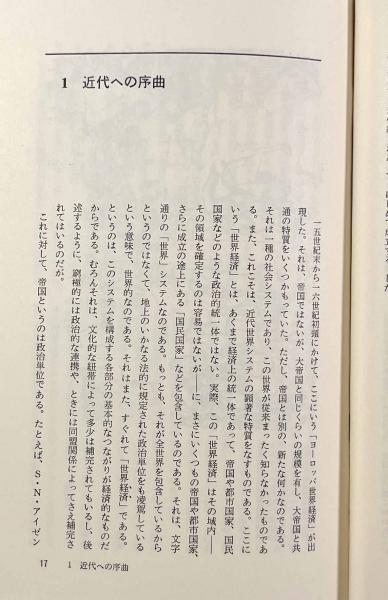 1 近代への序曲
一五世紀末から一六世紀初頭にかけて、ここにいう「ヨーロッパ世界経済」が出
現した。それは、帝国ではないが、大帝国と同じくらいの規模を有し、大帝国と共
通の特質をいくつかもっていた。ただし、帝国とは別の、新たな何かなのである。
それは一種の社会システムであり、この世界が従来まったく知らなかったものであ
る。また、これこそは、近代世界システムの顕著な特質をなすものである。ここに
いう「世界経済」とは、あくまで経済上の統一体であって、帝国や都市国家、国民
国家などのような政治的統一体ではない。実際、この「世界経済」はその域内——
その領域を確定するのは容易ではないが——に、まさにいくつもの帝国や都市国家、
さらに成立の途上にある「国民国家」などを包含しているのである。それは、文字
通りの「世界」システムなのである。もっとも、それが全世界を包含しているから
というのではなくて、地上のいかなる法的に規定された政治単位をも凌駕している
という意味で、世界的なのである。それはまた、すぐれて「世界経済」である。
というのは、このシステムを構成する各部分の基本的なつながりが経済的なものだ
からである。むろんそれは、文化的な紐帯によって多少は補完されてもいるし、後
述するように、窮極的には政治的な連携や、ときには同盟関係によってさえ補完さ
れてはいるのだが。
これに対して、帝国というのは政治単位である。たとえば、S・N・アイゼン
17 1 近代への序曲